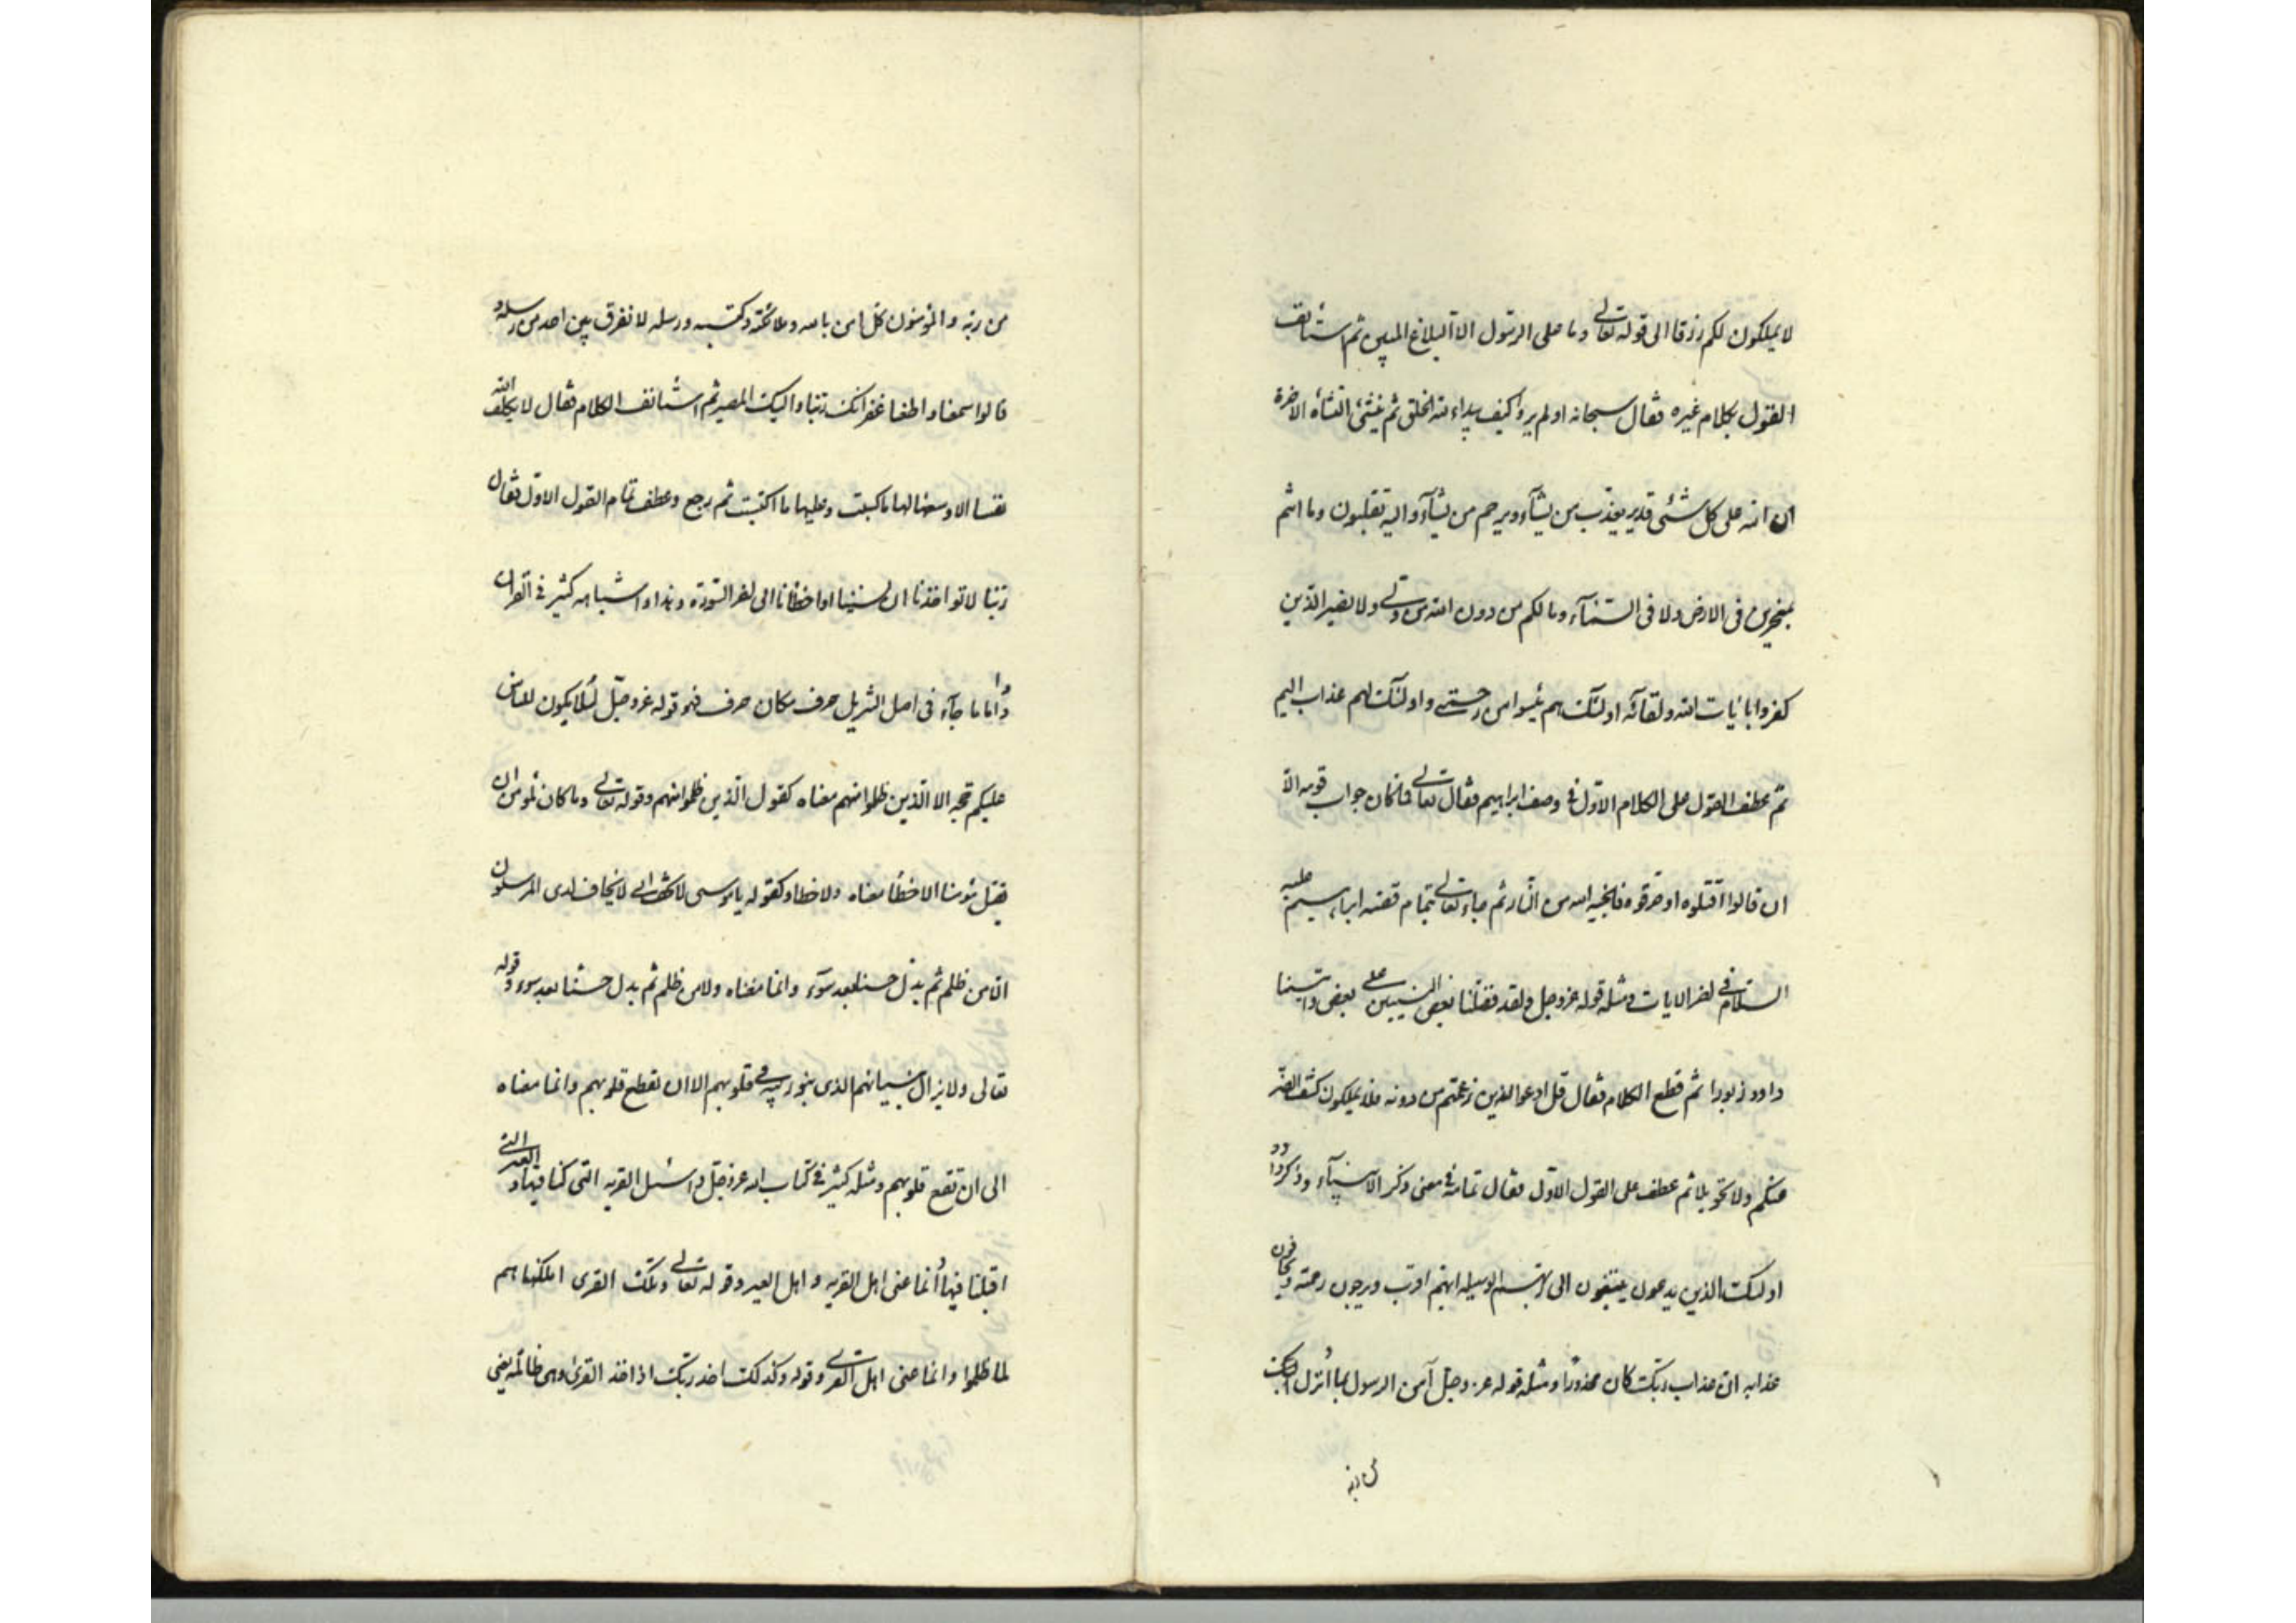 لا يملكون لكم رزقا الى قوله تعالى وما على الرسول الا البلاغ المبين ثم استأنف
القول بكلام غيره فقال سبحانه اولم يروا كيف يبداء الله الخلق ثم ينشئ النشأه الاخرة
ان الله على كل شئى قدير يعذب من يشآء ويرحم من يشآء واليه تقلبون وما انتم
بمعجزين فى الارض ولا فى السمآء وما لكم من دون الله من ولى ولا نصير الذين
كفروا بايات الله ولقآئه اولئك هم يئسوا من رحمتى واولئك لهم عذاب اليم
ثم عطف القول على الكلام الاول فى وصف ابراهيم فقال تعالى فما كان جواب قومه الا
ان قالوا اقتلوه او حرقوه فانجيه الله من النار ثم جاء تعالى بتمام قصه ابراهيم عليه
السلام فى اخر الايات ومثله قوله عز وجل ولقد فضلنا بعض النبيين على بعض واتينا
داود زبورا ثم قطع الكلام فقال قل ادعوا الذين زعمتم من دونه فلا يملكون كشف الضر
عنكم ولا تحويلا ثم عطف على القول الاول فقال تمامه فى معنى ذكر الانبيآء وذكر داود
اولئك الذين يدعون يبتغون الى ربهم الوسيله ايهم اقرب ويرجون رحمته ويخافون
عذابه ان عذاب ربك كان محذورا ومثله قوله عز وجل آمن الرسول بما أنزل اليه
من ربه
من ربه والمؤمنون كل امن بالله وملائكته وكتبه ورسله لا نفرق بين احد من رسله و
قالوا سمعنا واطعنا غفرانك ربنا واليك المصير ثم استانف الكلام فقال لا يكلف الله
نفسا الا وسعها لها ما كسبت وعليها ما اكتسبت ثم رجع وعطف تمام القول الاول فقال
ربنا لا تواخذنا ان نسينا او اخطأنا الى اخر السورة وهذا واشباهه كثير فى القران
واما ما جآء فى اصل التنزيل حرف مكان حرف فهو قوله عز وجل لئلا يكون للناس
عليكم حجه الا الذين ظلموا منهم معناه كقول الذين ظلموا منهم وقوله تعالى وما كان لمؤمن ان
يقتل مؤمنا الا خطأ معناه ولا خطا وكقوله يا موسى لا تخف انى لا يخاف لدى المرسلون
الا من ظلم ثم بدل حسنا بعد سوء وانما معناه ولا من ظلم ثم بدل حسنا بعد سوء وقوله
تعالى ولا يزال بنيانهم الذى بنوا ريبه فى قلوبهم الا ان تقطع قلوبهم وانما معناه
الى ان تقطع قلوبهم ومثله كثير فى كتاب الله عز وجل واسئل القريه التى كنا فيها والعير التى
اقبلنا فيها وأنما عنى اهل القريه واهل العير وقوله تعالى وتلك القرى اهلكناهم
لما ظلموا وانما عنى اهل القرى وقوله وكذلك اخذ ربك اذا اخذ القرى وهى ظالمه يعنى